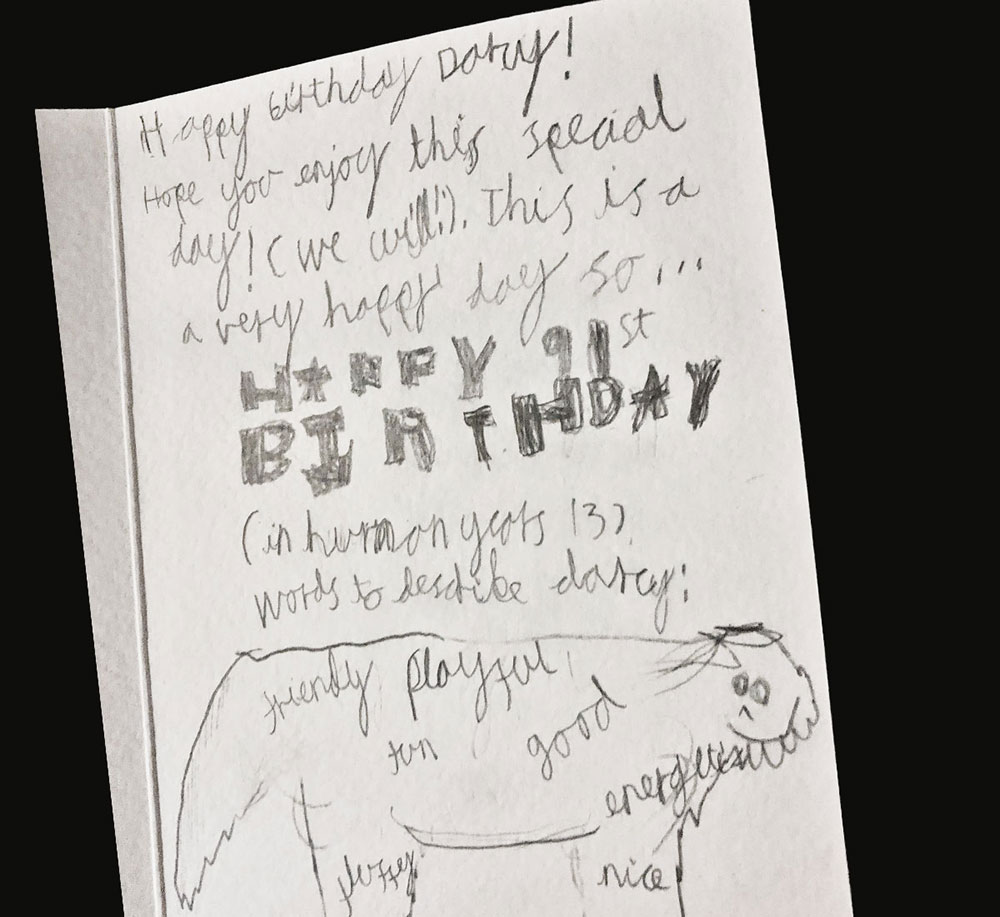 Happy birthday Darcy!
Hope you enjoy this special
day! (we will!). This is a
a very happy day so...
HAPPY 91st
BIRTHDAY
(in human years 13)
words to describe darcy:
friendly playful,
fun good
energetic
fluffy nice